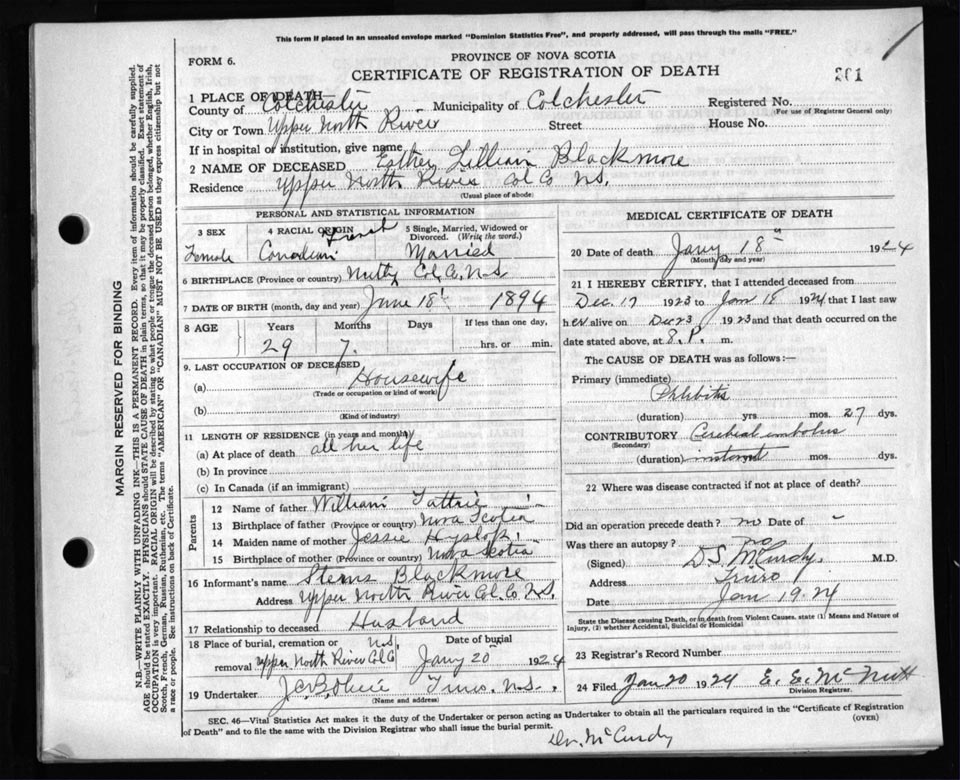 This form if placed in an unsealed envelope marked "Dominion Statistics Free", and properly addressed, will pass through the mails "FREE."
FORM 6.
PROVINCE OF NOVA SCOTIA
CERTIFICATE OF REGISTRATION OF DEATH
201
1 PLACE OF DEATH—
County of Colchester Municipality of Colchester Registered No.
(For use of Registrar General only)
City or Town Upper North River Street House No.
If in hospital or institution, give name
2 NAME OF DECEASED Esther Lillian Blackmore
Residence Upper North River Col Co N.S.
(Usual place of abode)
PERSONAL AND STATISTICAL INFORMATION
3 SEX 4 RACIAL ORIGIN 5 Single, Married, Widowed or Divorced. (Write the word.)
French
Female Canadian Married
6 BIRTHPLACE (Province or country) Nuttby Col. Co. N.S
7 DATE OF BIRTH (month, day and year) June 18 1894
8 AGE Years Months Days If less than one day,
29 7. hrs. or min.
9. LAST OCCUPATION OF DECEASED
(a) Housewife
(Trade or occupation or kind of work)
(b)
(Kind of industry)
11 LENGTH OF RESIDENCE (in years and months)
(a) At place of death all her life
(b) In province
(c) In Canada (if an immigrant)
Parents
12 Name of father William Tattrie
13 Birthplace of father (Province or country) Nova Scotia
14 Maiden name of mother Jessie Hyslop
15 Birthplace of mother (Province or country) Nova Scotia
16 Informant's name Blackmore
Address Upper North River Col. Co. N.S.
17 Relationship to deceased Husband
18 Place of burial, cremation or N.S. Date of burial
removal Upper North River Col Co Jany 20 1924
19 Undertaker Truro N.S.
(Name and address)
MEDICAL CERTIFICATE OF DEATH
20 Date of death Jany 18 1924
(Month, day and year)
21 I HEREBY CERTIFY, that I attended deceased from
Dec. 17 1923 to Jan 18 1924 that I last saw
her alive on Dec 23 1923 and that death occurred on the
date stated above, at 8. P. m.
The CAUSE OF DEATH was as follows:—
Primary (immediate) Phlebitis
(duration) yrs mos. 27 dys.
CONTRIBUTORY Cerebral embolus
(Secondary)
(duration) instant mos. dys.
22 Where was disease contracted if not at place of death?
Did an operation precede death? no Date of -
Was there an autopsy? no
(Signed) D.S. McCurdy, M.D.
Address Truro
Date Jan 19. 24
State the Disease causing Death, or in death from Violent Causes, state (1) Means and Nature of Injury, (2) whether Accidental, Suicidal or Homicidal
23 Registrar's Record Number
24 Filed Jan 20 1924 E. E. McNutt
Division Registrar.
SEC. 46—Vital Statistics Act makes it the duty of the Undertaker or person acting as Undertaker to obtain all the particulars required in the "Certificate of Registration
of Death" and to file the same with the Division Registrar who shall issue the burial permit.
(OVER)
Dr. McCurdy
MARGIN RESERVED FOR BINDING
N.B.—WRITE PLAINLY WITH UNFADING INK—THIS IS A PERMANENT RECORD. Every item of information should be carefully supplied.
AGE should be stated EXACTLY. PHYSICIANS should STATE CAUSE OF DEATH in plain terms, so that it may be properly classified. Exact statement of
OCCUPATION is very important. RACIAL ORIGIN will be described by stating to what people or tongue the deceased person belonged, whether English, Irish,
Scotch, French, German, Russian, Ruthenian, etc. The terms "AMERICAN" OR "CANADIAN" MUST NOT BE USED as they express citizenship but not
a race or people. See instructions on back of Certificate.